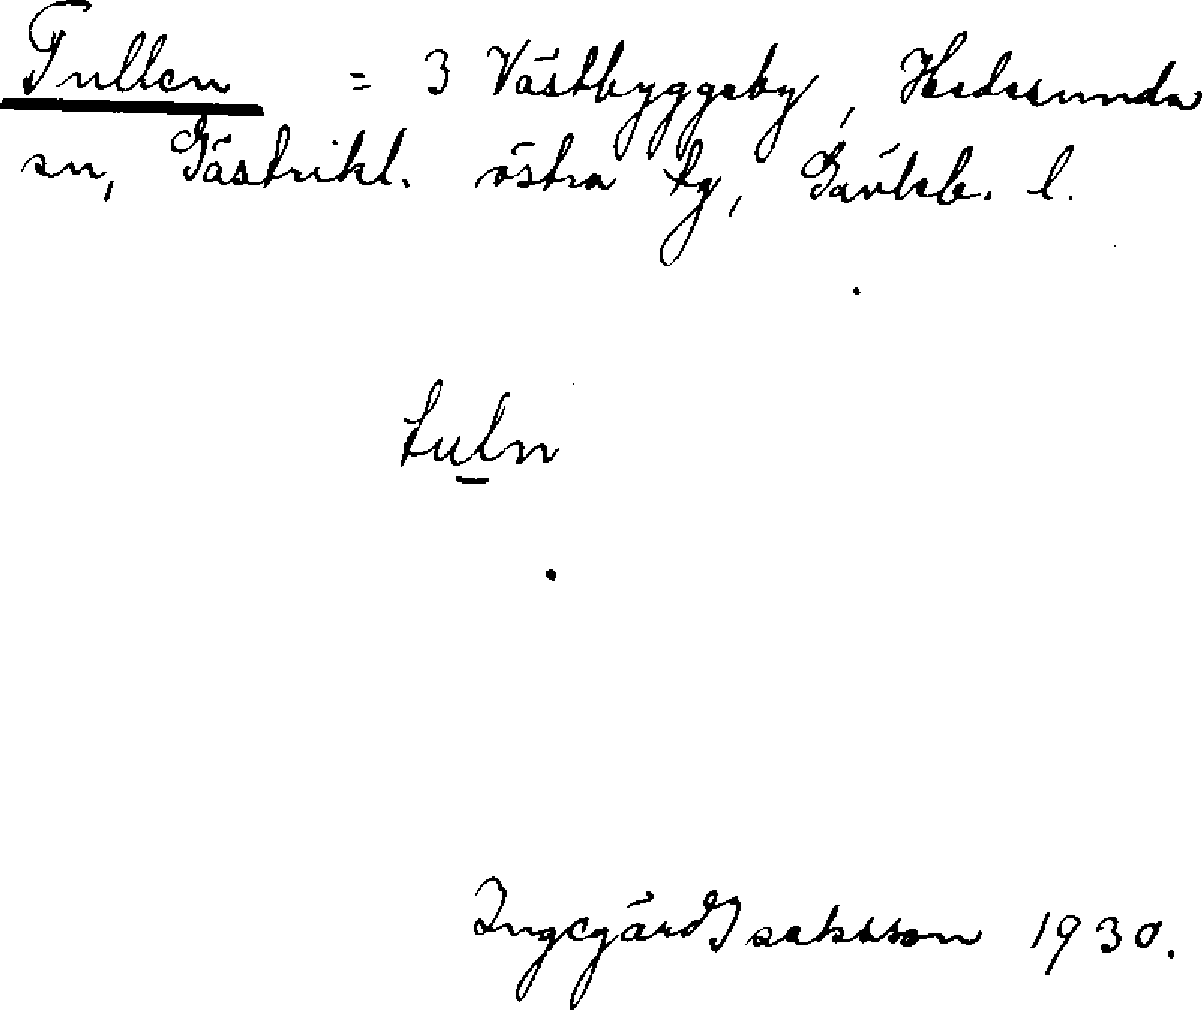 Tullen = 3 Västbyggeby, Hedesunda
sn, Gästrikl. östra tg, Gävleb. l.
tuln
Ingegärd Isaksson 1930.